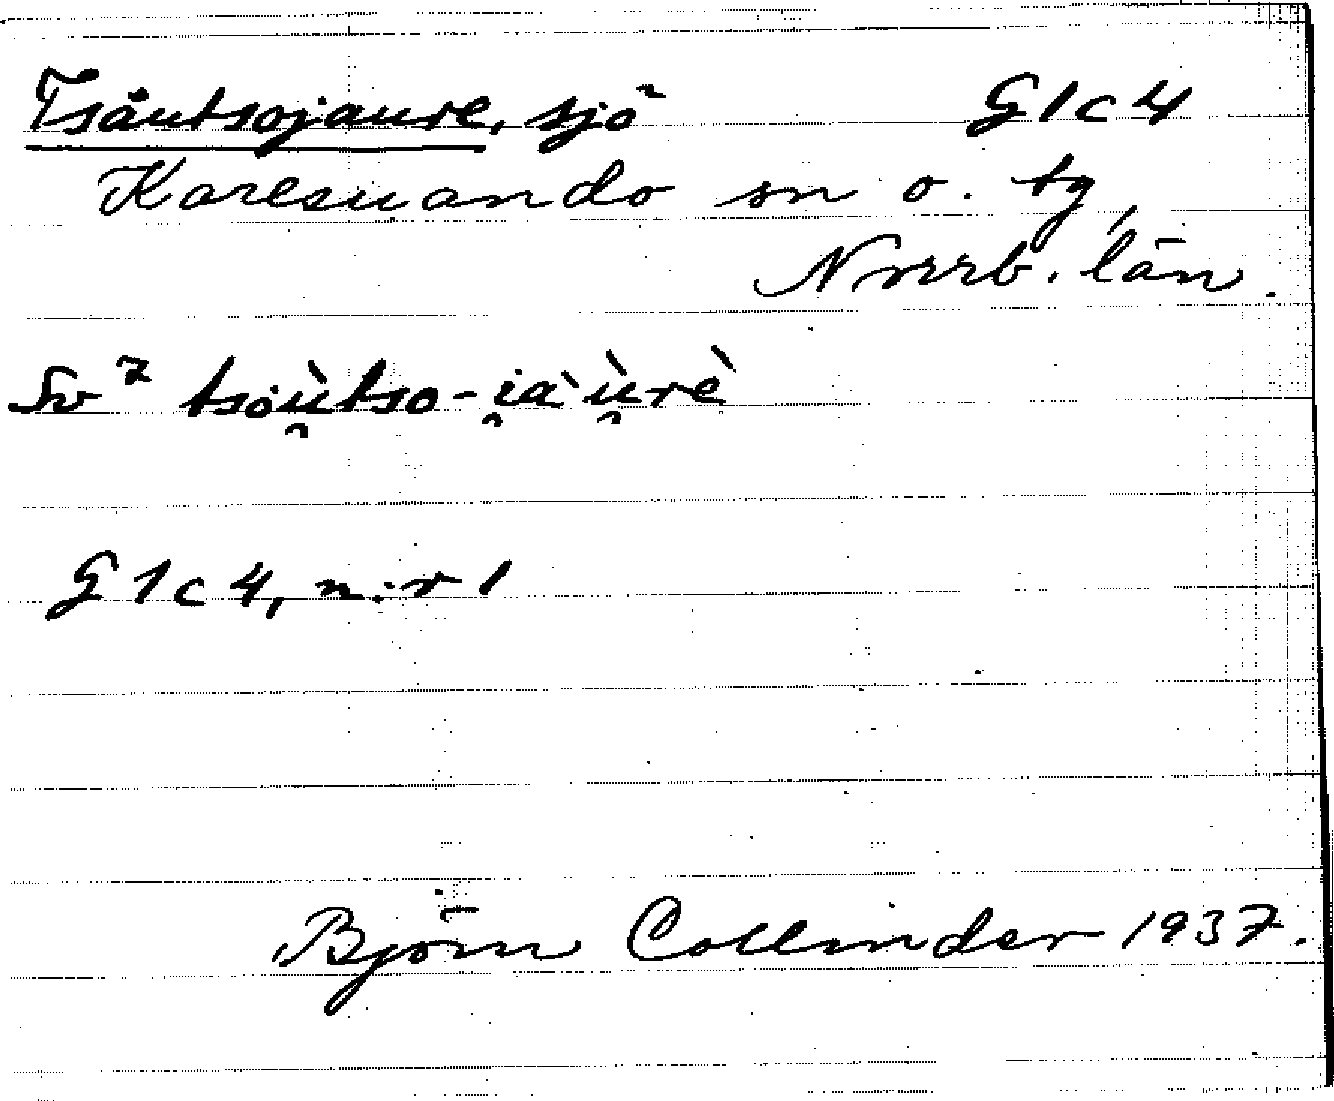 Tsåutsojaure, sjö G1c4
Karesuando sn o. tg,
Norrb. län.
Sv⁷ tsȯṷ̀tso-i̯a`ṷ̀rè
G1c4, n:r 1
Björn Collinder 1937.